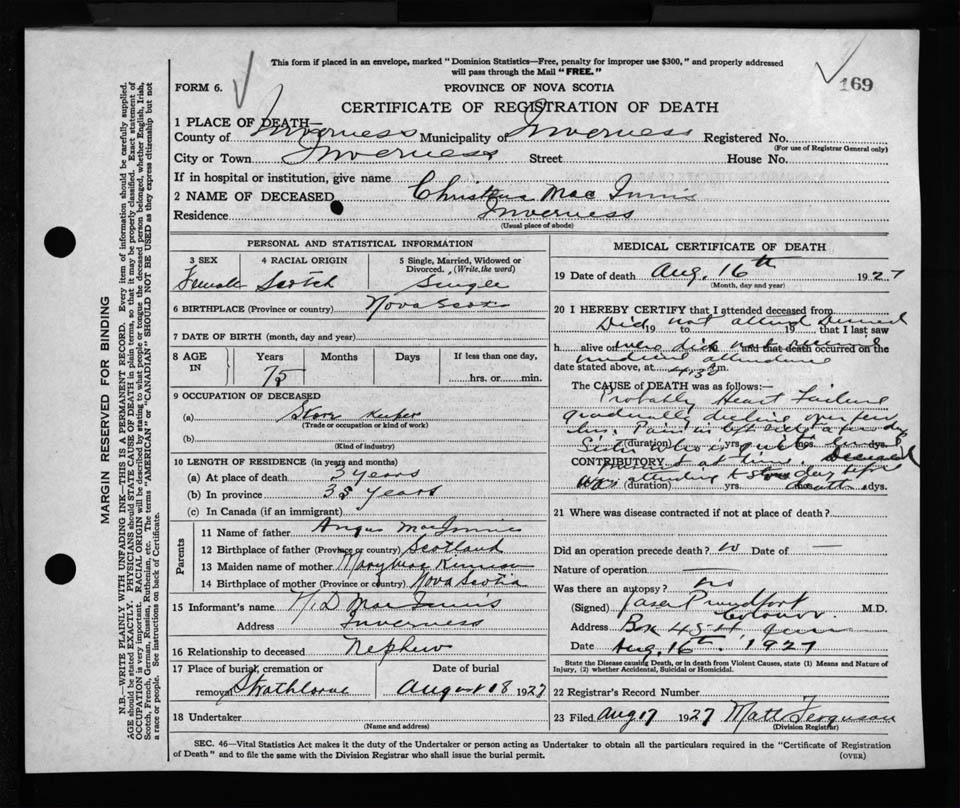 This form if placed in an envelope, marked "Dominion Statistics—Free, penalty for improper use $300," and properly addressed
will pass through the Mail "FREE."
169
FORM 6.
PROVINCE OF NOVA SCOTIA
CERTIFICATE OF REGISTRATION OF DEATH
1 PLACE OF DEATH—
County of Inverness Municipality of Inverness Registered No.
(For use of Registrar General only)
City or Town Inverness Street House No.
If in hospital or institution, give name
2 NAME OF DECEASED Christena Mac Innis
Residence Inverness
(Usual place of abode)
PERSONAL AND STATISTICAL INFORMATION
3 SEX 4 RACIAL ORIGIN 5 Single, Married, Widowed or
Divorced. (Write the word)
Female Scotch Single
6 BIRTHPLACE (Province or country) Nova Scotia
7 DATE OF BIRTH (month, day and year)
8 AGE IN Years Months Days If less than one day,
75 hrs. or min.
9 OCCUPATION OF DECEASED
(a) Store Keeper
(Trade or occupation or kind of work)
(b)
(Kind of industry)
10 LENGTH OF RESIDENCE (in years and months)
(a) At place of death 3 years
(b) In province years
(c) In Canada (if an immigrant)
Parents
11 Name of father Angus MacInnis
12 Birthplace of father (Province or country) Scotland
13 Maiden name of mother Mary Mac
14 Birthplace of mother (Province or country) Nova Scotia
15 Informant's name D MacInnis
Address Inverness
16 Relationship to deceased Nephew
17 Place of burial, cremation or Date of burial
removal Strathlorne August 18 1927
18 Undertaker
(Name and address)
MEDICAL CERTIFICATE OF DEATH
19 Date of death Aug. 16th 1927
(Month, day and year)
20 I HEREBY CERTIFY that I attended deceased from
Did not attend deceased
19 to 19 that I last saw
h alive on and that death occurred on the
medical attendance
date stated above, at m.
The CAUSE of DEATH was as follows:
Probably Heart Failure
gradually declining over few
(duration) yrs. mos. dys.
CONTRIBUTORY Deceased
was attending to store day before
(duration) yrs. mos. dys.
death
21 Where was disease contracted if not at place of death?
Did an operation precede death? no Date of —
Nature of operation —
Was there an autopsy? no
(Signed) Proudfoot M.D.
Coroner
Address Box
Date Aug. 16th. 1927
State the Disease causing Death, or in death from Violent Causes, state (1) Means and Nature of
Injury, (2) whether Accidental, Suicidal or Homicidal.
22 Registrar's Record Number
23 Filed Aug 17 1927 Matt Ferguson
(Division Registrar)
SEC. 46—Vital Statistics Act makes it the duty of the Undertaker or person acting as Undertaker to obtain all the particulars required in the "Certificate of Registration
of Death" and to file the same with the Division Registrar who shall issue the burial permit. (OVER)
MARGIN RESERVED FOR BINDING
N.B.—WRITE PLAINLY WITH UNFADING INK—THIS IS A PERMANENT RECORD. Every item of information should be carefully supplied.
AGE should be stated EXACTLY. PHYSICIANS should STATE CAUSE OF DEATH in plain terms, so that it may be properly classified. Exact statement of
OCCUPATION is very important. RACIAL ORIGIN will be described by stating to what people or tongue the deceased person belonged, whether English, Irish,
Scotch, French, German, Russian, Ruthenian, etc. The terms "AMERICAN" or "CANADIAN" SHOULD NOT BE USED as they express citizenship but not
a race or people. See instructions on back of Certificate.